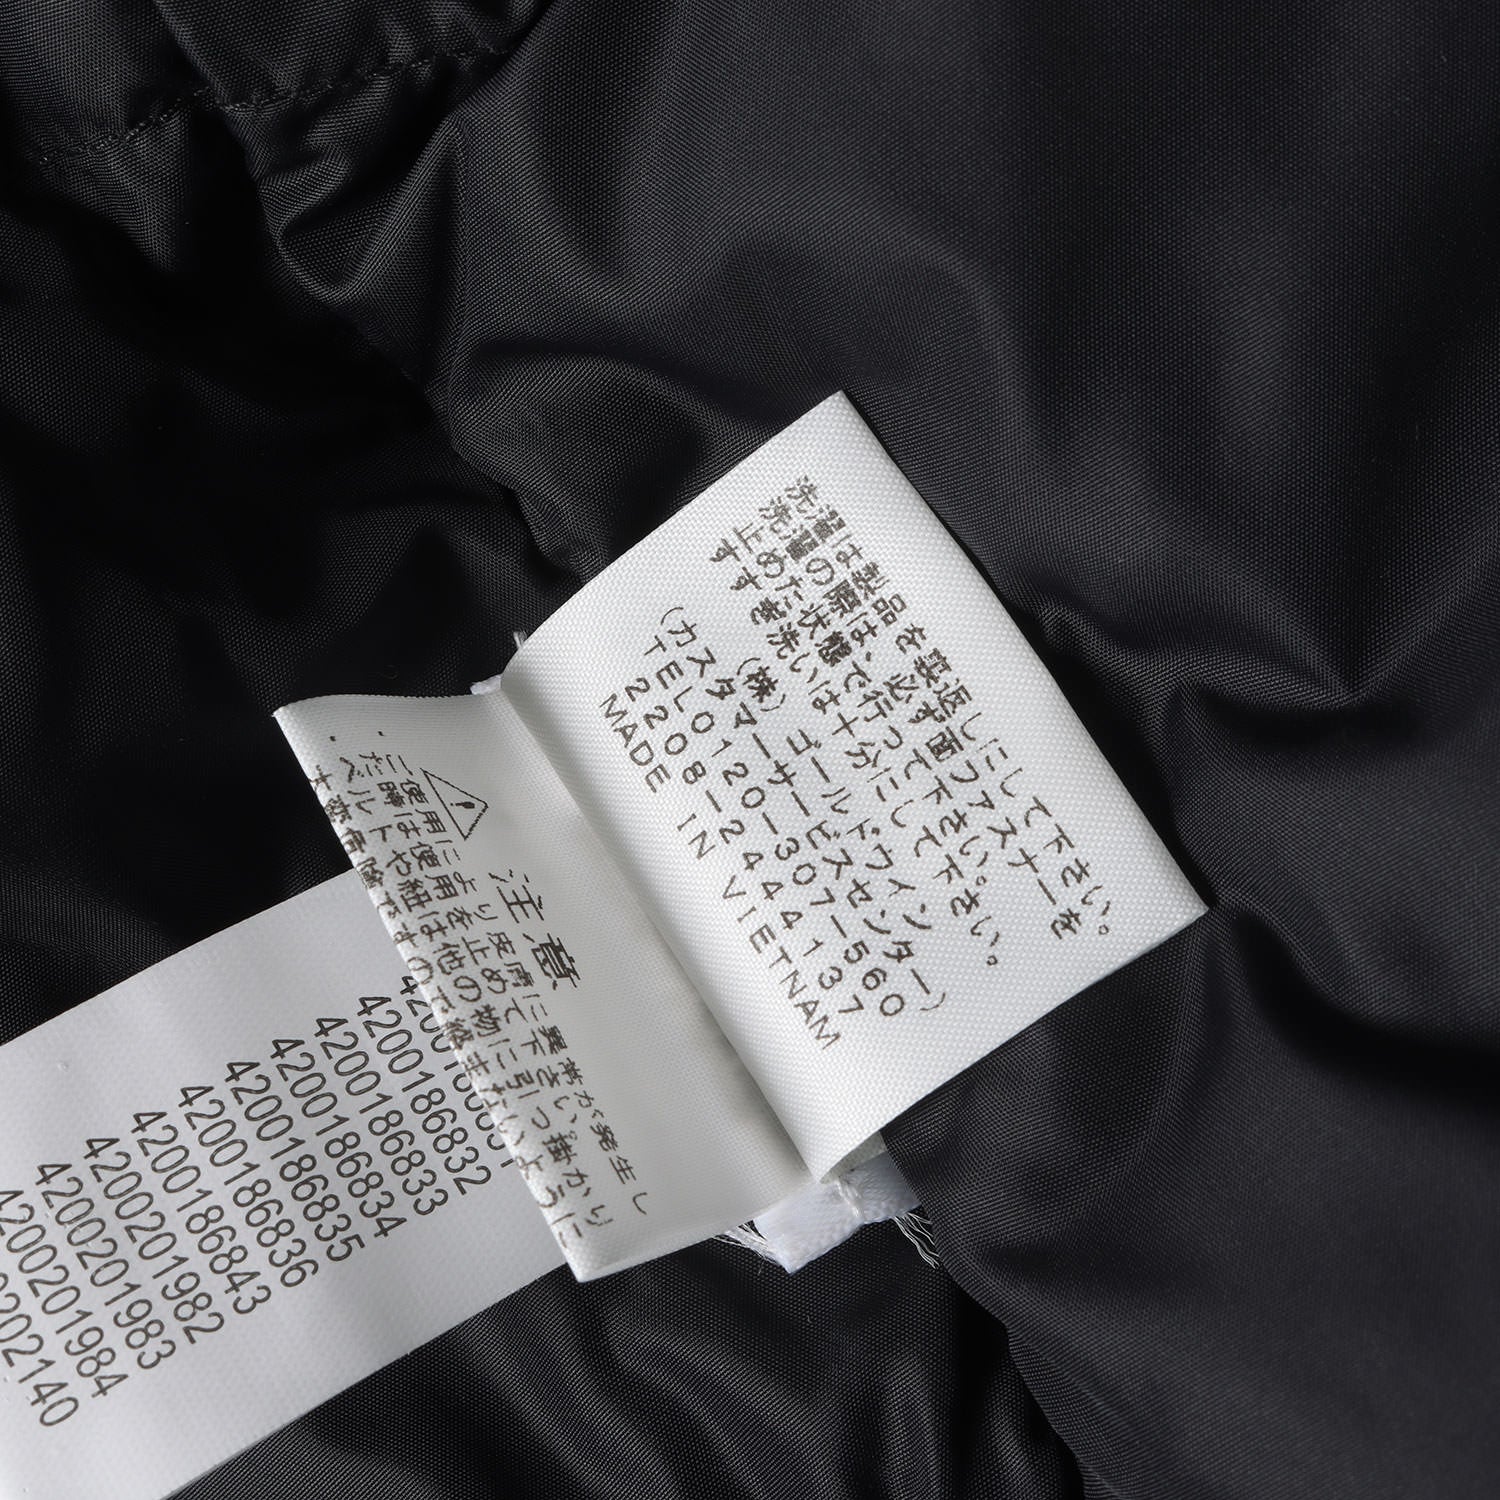 洗濯は製品を裏返しにして下さい。
洗濯の際は、必ず面ファスナーを
止めた状態で行って下さい。
すすぎ洗いは十分にして下さい。
(株)ゴールドウィン
(カスタマーサービスセンター)
TEL0120-307-560
2208-244137
MADE IN VIETNAM
注意
ご使用により皮膚に異常が発生し
ご使用を止めて下さい。
だベルトや紐は他の物に引っ掛かり
4200186832
4200186833
4200186834
4200186835
4200186836
4200186843
4200201982
4200201983
4200201984
4200202140